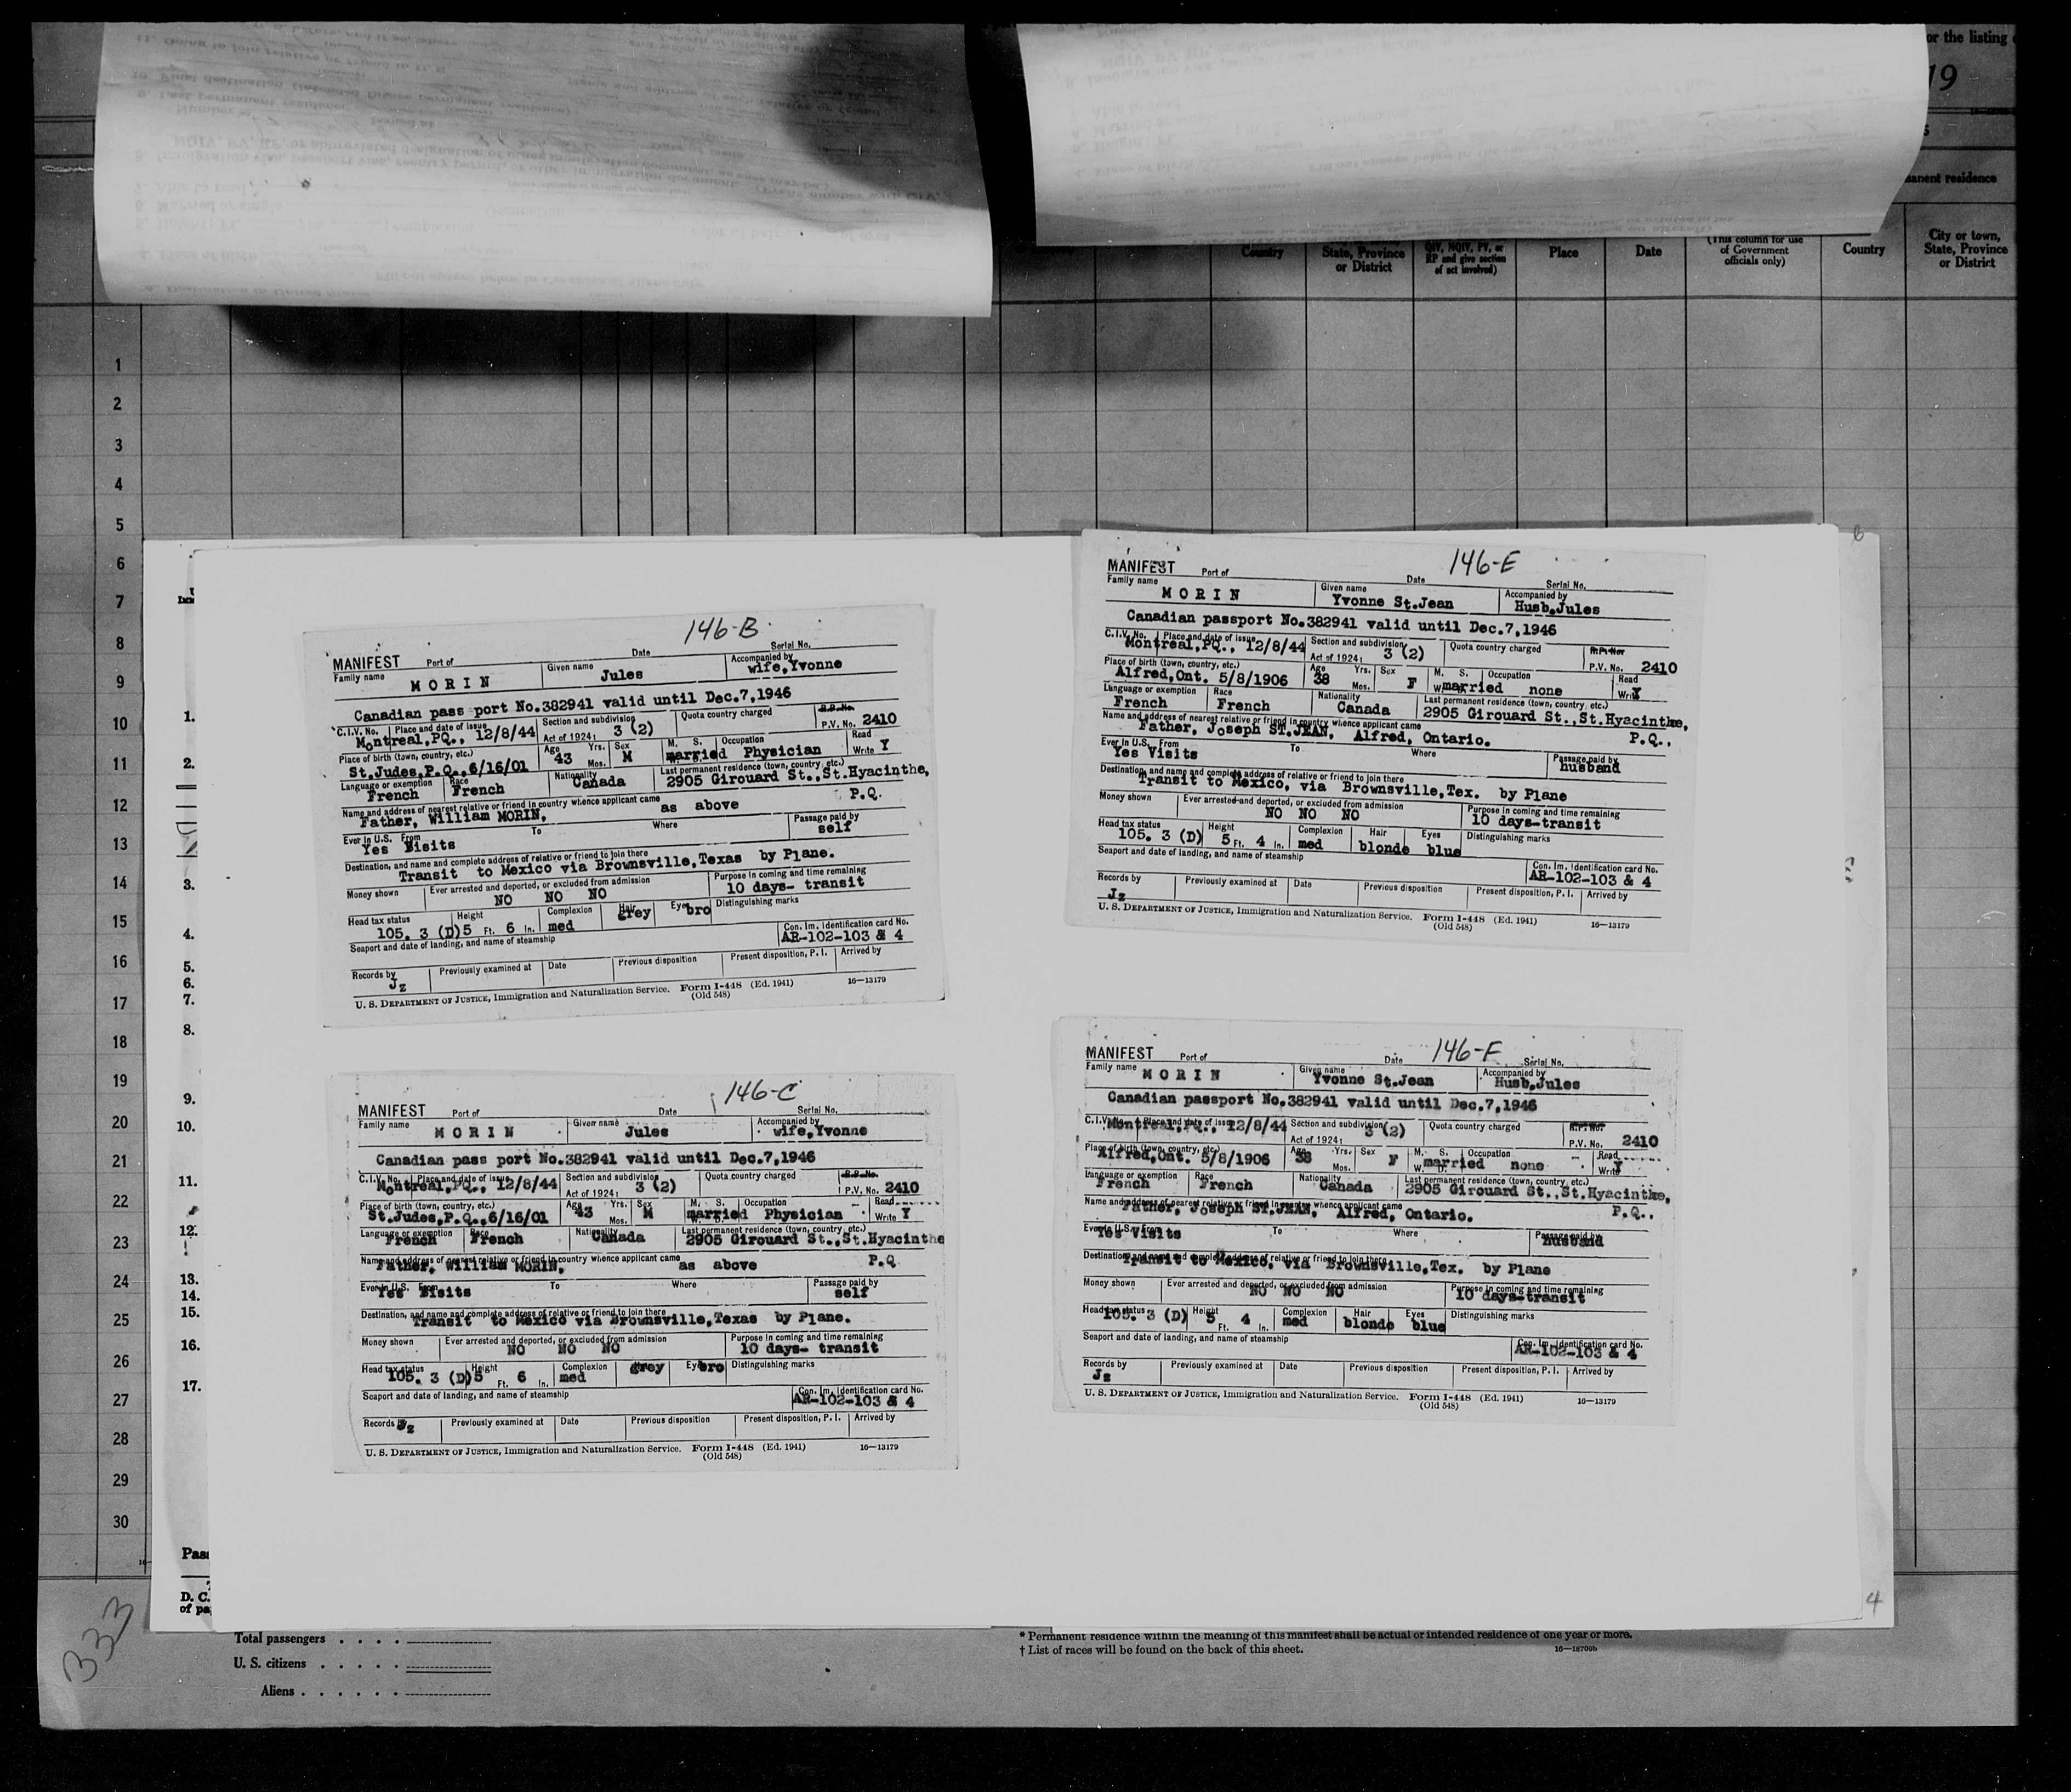 or the listing
19
manent residence
Country
State, Province
or District
QIV, NQIV, PV, or
RP and give section
of act involved)
Place
Date
(This column for use
of Government
officials only)
Country
City or town,
State, Province
or District
1
2
3
4
5
6
7
8
9
10
11
12
13
14
15
16
17
18
19
20
21
22
23
24
25
26
27
28
29
30
1.
2.
3.
4.
5.
6.
7.
8.
9.
10.
11.
12.
13.
14.
15.
16.
17.
146-B
MANIFEST Port of Date Serial No.
Family name MORIN Given name Jules Accompanied by wife,Yvonne
Canadian pass port No.382941 valid until Dec.7,1946
C.I.V. No. Place and date of issue Montreal,PQ., 12/8/44 Section and subdivision Act of 1924: 3 (2) Quota country charged R.P. No. P.V. No. 2410
Place of birth (town, country, etc.) St.Judes,P.Q.,6/16/01 Age 43 Yrs. Mos. Sex M M. S. W. D. married Occupation Physician Read Write Y
Language or exemption French Race French Nationality Canada Last permanent residence (town, country, etc.) 2905 Girouard St.,St.Hyacinthe,
Name and address of nearest relative or friend in country whence applicant came Father, William MORIN, as above P.Q.
Ever in U.S. From Yes Visits To Where Passage paid by self
Destination, and name and complete address of relative or friend to join there Transit to Mexico via Brownsville,Texas by Plane.
Money shown Ever arrested and deported, or excluded from admission NO NO NO Purpose in coming and time remaining 10 days- transit
Head tax status 105. 3 (D) Height 5 Ft. 6 In. Complexion med Hair grey Eyes bro Distinguishing marks
Seaport and date of landing, and name of steamship Con. Im. Identification card No. AR-102-103 & 4
Records by Jz Previously examined at Date Previous disposition Present disposition, P. I. Arrived by
U. S. DEPARTMENT OF JUSTICE, Immigration and Naturalization Service. Form I-448 (Ed. 1941) 16—13179
(Old 548)
146-C
MANIFEST Port of Date Serial No.
Family name MORIN Given name Jules Accompanied by wife,Yvonne
Canadian pass port No.382941 valid until Dec.7,1946
C.I.V. No. Place and date of issue Montreal,PQ., 12/8/44 Section and subdivision Act of 1924: 3 (2) Quota country charged R.P. No. P.V. No. 2410
Place of birth (town, country, etc.) St.Judes,P.Q.,6/16/01 Age 43 Yrs. Mos. Sex M M. S. W. D. married Occupation Physician Read Write Y
Language or exemption French Race French Nationality Canada Last permanent residence (town, country, etc.) 2905 Girouard St.,St.Hyacinthe
Name and address of nearest relative or friend in country whence applicant came Father, William MORIN, as above P.Q
Ever in U.S. From Yes Visits To Where Passage paid by self
Destination, and name and complete address of relative or friend to join there Transit to Mexico via Brownsville,Texas by Plane.
Money shown Ever arrested and deported, or excluded from admission NO NO NO Purpose in coming and time remaining 10 days- transit
Head tax status 105. 3 (D) Height 5 Ft. 6 In. Complexion med grey Eyes bro Distinguishing marks
Seaport and date of landing, and name of steamship Con. Im. Identification card No. AR-102-103 & 4
Records by Jz Previously examined at Date Previous disposition Present disposition, P. I. Arrived by
U. S. DEPARTMENT OF JUSTICE, Immigration and Naturalization Service. Form I-448 (Ed. 1941) 16—13179
(Old 548)
146-E
MANIFEST Port of Date Serial No.
Family name MORIN Given name Yvonne St.Jean Accompanied by Husb.Jules
Canadian passport No.382941 valid until Dec.7,1946
C.I.V. No. Place and date of issue Montreal,PQ., 12/8/44 Section and subdivision Act of 1924: 3 (2) Quota country charged P.V. No. 2410
Place of birth (town, country, etc.) Alfred,Ont. 5/8/1906 Age 38 Yrs. Mos. Sex F M. S. W. D. married Occupation none Read Write Y
Language or exemption French Race French Nationality Canada Last permanent residence (town, country, etc.) 2905 Girouard St.,St.Hyacinthe,
Name and address of nearest relative or friend in country whence applicant came Father, Joseph ST.JEAN, Alfred, Ontario. P.Q.,
Ever in U.S. From Yes Visits To Where Passage paid by husband
Destination, and name and complete address of relative or friend to join there Transit to Mexico, via Brownsville,Tex. by Plane
Money shown Ever arrested and deported, or excluded from admission NO NO NO Purpose in coming and time remaining 10 days-transit
Head tax status 105. 3 (D) Height 5 Ft. 4 In. Complexion med Hair blonde Eyes blue Distinguishing marks
Seaport and date of landing, and name of steamship Con. Im. Identification card No. AR-102-103 & 4
Records by Jz Previously examined at Date Previous disposition Present disposition, P. I. Arrived by
U. S. DEPARTMENT OF JUSTICE, Immigration and Naturalization Service. Form I-448 (Ed. 1941) 16—13179
(Old 548)
146-F
MANIFEST Port of Date Serial No.
Family name MORIN Given name Yvonne St.Jean Accompanied by Husb.Jules
Canadian passport No.382941 valid until Dec.7,1946
C.I.V. No. Place and date of issue Montreal,PQ., 12/8/44 Section and subdivision Act of 1924: 3 (2) Quota country charged P.V. No. 2410
Place of birth (town, country, etc.) Alfred,Ont. 5/8/1906 Age 38 Yrs. Mos. Sex F M. S. W. D. married Occupation none Read Write Y
Language or exemption French Race French Nationality Canada Last permanent residence (town, country, etc.) 2905 Girouard St.,St.Hyacinthe,
Name and address of nearest relative or friend in country whence applicant came Father, Joseph ST.JEAN, Alfred, Ontario. P.Q.,
Ever in U.S. From Yes Visits To Where Passage paid by husband
Destination, and name and complete address of relative or friend to join there Transit to Mexico, via Brownsville,Tex. by Plane
Money shown Ever arrested and deported, or excluded from admission NO NO NO Purpose in coming and time remaining 10 days-transit
Head tax status 105. 3 (D) Height 5 Ft. 4 In. Complexion med Hair blonde Eyes blue Distinguishing marks
Seaport and date of landing, and name of steamship Con. Im. Identification card No. AR-102-103 & 4
Records by Jz Previously examined at Date Previous disposition Present disposition, P. I. Arrived by
U. S. DEPARTMENT OF JUSTICE, Immigration and Naturalization Service. Form I-448 (Ed. 1941) 16—13179
(Old 548)
6
4
333
Pass
D. C.
of pa
Total passengers
U. S. citizens
Aliens
* Permanent residence within the meaning of this manifest shall be actual or intended residence of one year or more.
† List of races will be found on the back of this sheet. 16—18700b